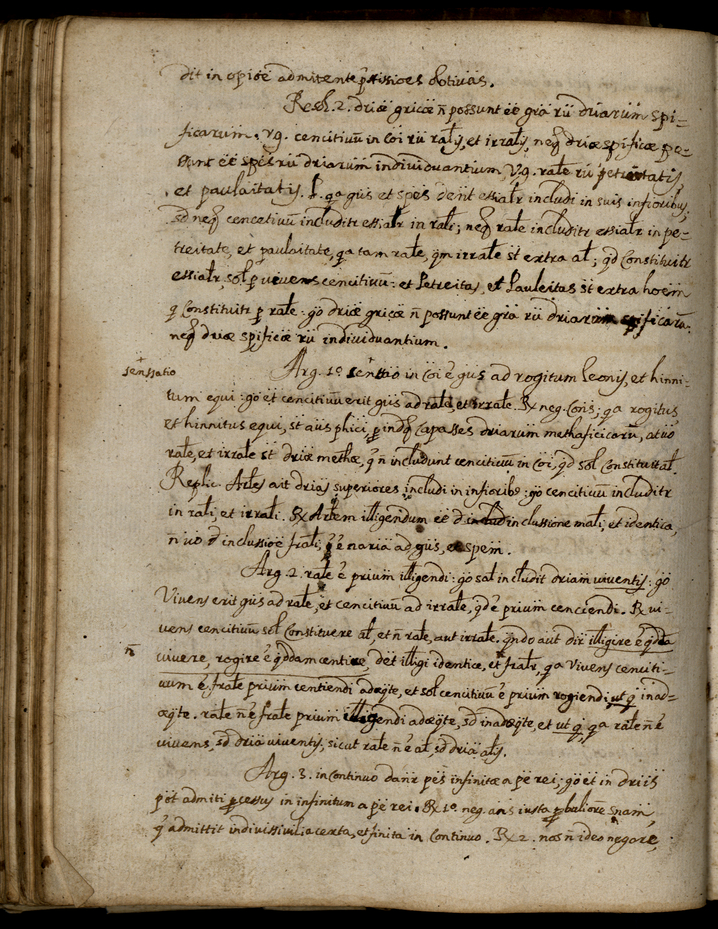 dit in opiöe admitente p̃cissioes obtivas.
Resol. 2. driæ gricæ ñ possunt ëe gra rü driarum spi=
ficarum. v.g. cencitivü in coi rü ralis, et irralis, neq driæ spificæ po=
ssunt ëe spes rü driarum individuantium, v.g. rale rü petreitatis
, et paulaitatis. P. qa gus et spes dent essialr includi in suis inferioribus,
sd neq cencitivü includitr essialr in rali; neq rale includitr essialr in pe=
treitate, et paulaitate, qa tam rale, qm irrale st extra al; qd Constituitr
essialr sol p vivens cencitivü: et Petreitas, et Pauleitas st extra hoem
q Constituitr p rale: go driæ gricæ ñ possunt ëe gra rü driarum spificarü
neq driæ spificæ rü individuantium.
senssatio
Arg. 1º senssatio in coi ë gus ad rogitum leonis, et hinni-
tum equi: go et cencitivü erit gus ad rale, et irrale. Rx neg. Cons; qa rogitus
et hinnitus equi, st aus phici, p indeq capasses driarum methaficicarü, at vo
rale, et irrale st driæ methæ, q ñ includunt cencitivü in coi, qd sol Constituit al.
Replic. Arles ait drias superiores includi in inferiorib9: go cencitivü includitr
in rali, et irrali. Rx Arlem illigendum ëe d inclussione mali, et identica,
ñ vo d inclussioe frali, q ë naria ad gus, et spem.
Arg. 2. rale ë prium illigendi: go sal includit driam viventis: go
Vivens erit gus ad rale, et cencitivü ad irrale, qd ë prium cenciendi. Rx vi-
vens cencitivü sol Constituere al, et ñ rale, aut irrale. qndo aut dir illigire ë qdda
ñ
vivere, rogire ë qddam centire, det illigi identice, et fralr, qa vivens cenciti-
vum ë frale prium centiendi adæqte, et sol cencitivü ë prium rogiendi ut q inad=
æqte. rale ñ ë frale prium illigendi adæqte, sd inadæqte, et ut q, qa rale ñ ë
vivens, sd dria viventis, sicut rale ñ ë al, sd dria alis.
Arg. 3. in continuo danr pes infinitæ a pe rei; go et in driis
pot admiti p̃cessus in infinitum a pe rei. Rx 1º neg. ans iusta p̃babliore snam,
q admittit indivissivilia certa, et finita in continuo. Rx 2. nos ñ ideo negare,